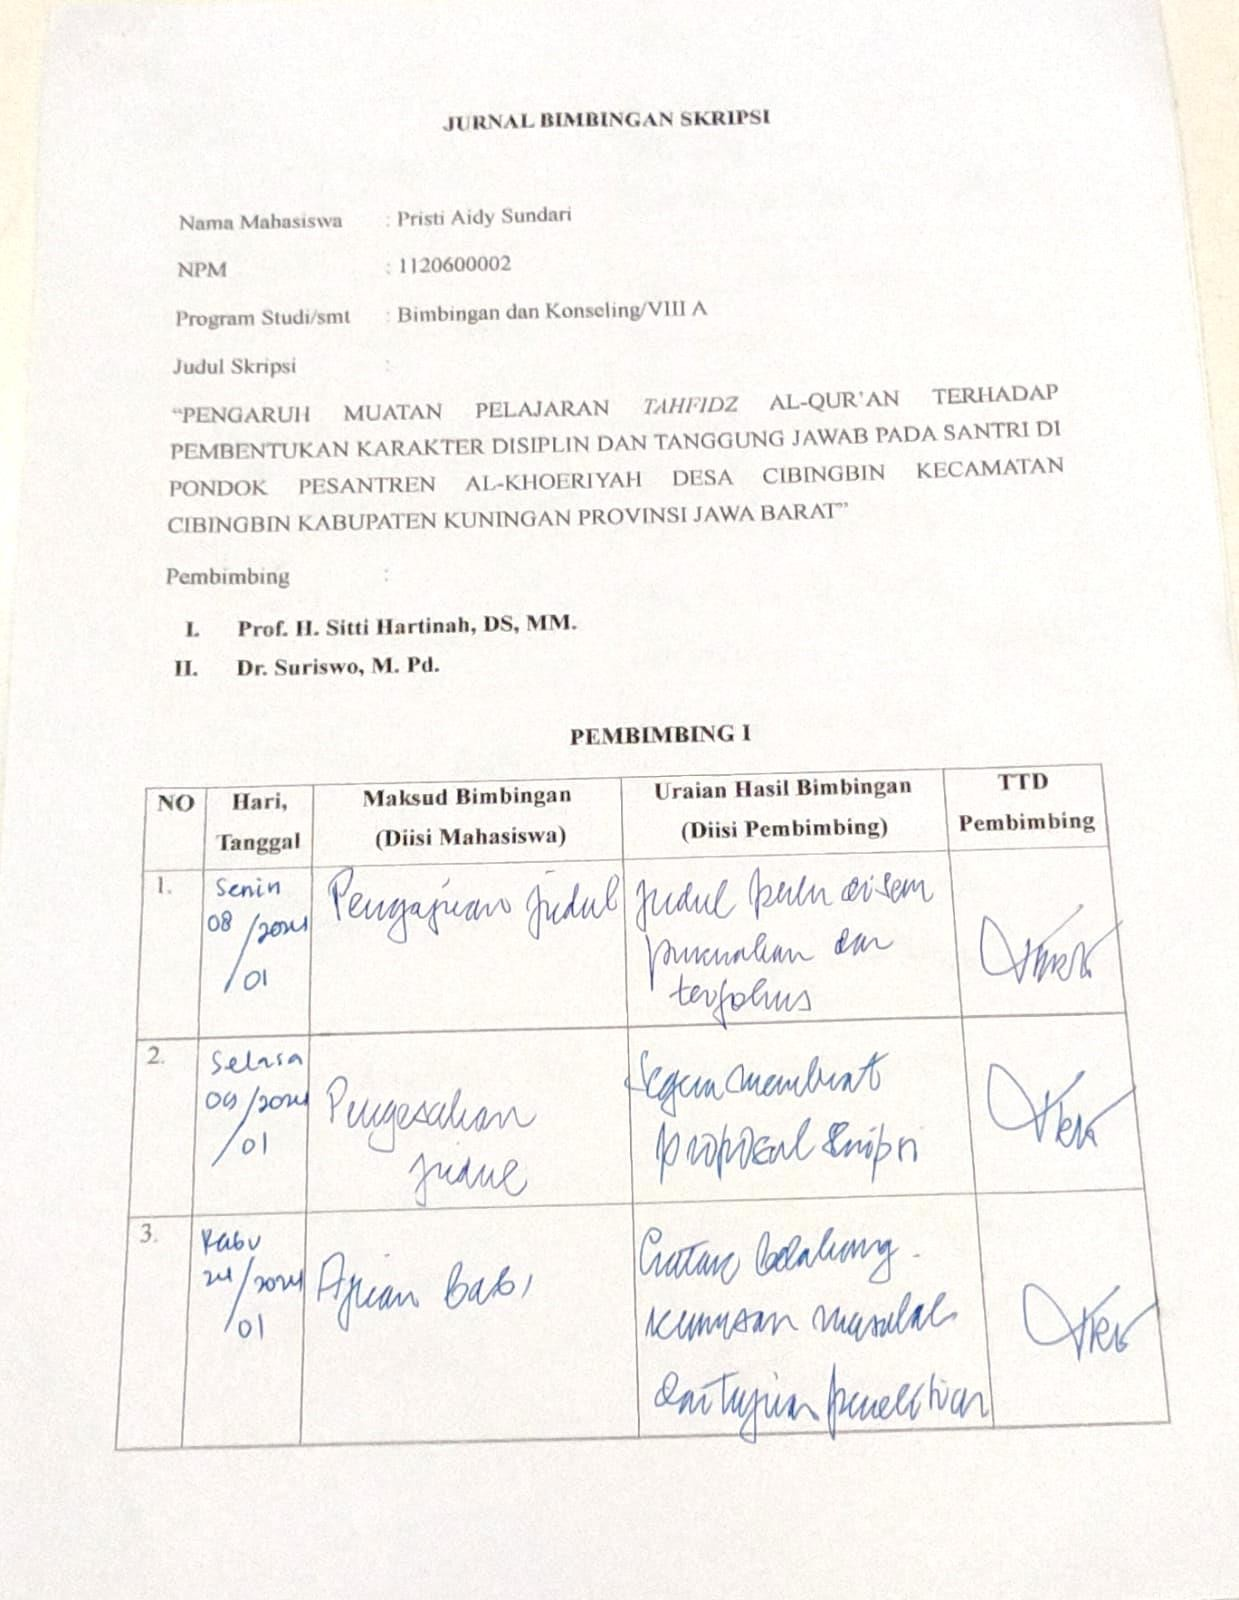 JURNAL BIMBINGAN SKRIPSI
Nama Mahasiswa : Pristi Aidy Sundari
NPM : 1120600002
Program Studi/smt : Bimbingan dan Konseling/VIII A
Judul Skripsi :
“PENGARUH MUATAN PELAJARAN TAHFIDZ AL-QUR’AN TERHADAP
PEMBENTUKAN KARAKTER DISIPLIN DAN TANGGUNG JAWAB PADA SANTRI DI
PONDOK PESANTREN AL-KHOERIYAH DESA CIBINGBIN KECAMATAN
CIBINGBIN KABUPATEN KUNINGAN PROVINSI JAWA BARAT”
Pembimbing :
I. Prof. H. Sitti Hartinah, DS, MM.
II. Dr. Suriswo, M. Pd.
PEMBIMBING I
NO Hari, Tanggal Maksud Bimbingan (Diisi Mahasiswa) Uraian Hasil Bimbingan (Diisi Pembimbing) TTD Pembimbing
1.
Senin
08/2024
/01
Pengajuan judul
Judul perlu disem
purnakan dan
terfokus
2.
Selasa
09/2024
/01
Pengesahan
judul
Segera membuat
proposal Skripsi
3.
Rabu
24/2024
/01
Ajuan bab 1
belakang.
rumusan masalah
dan tujuan penelitian